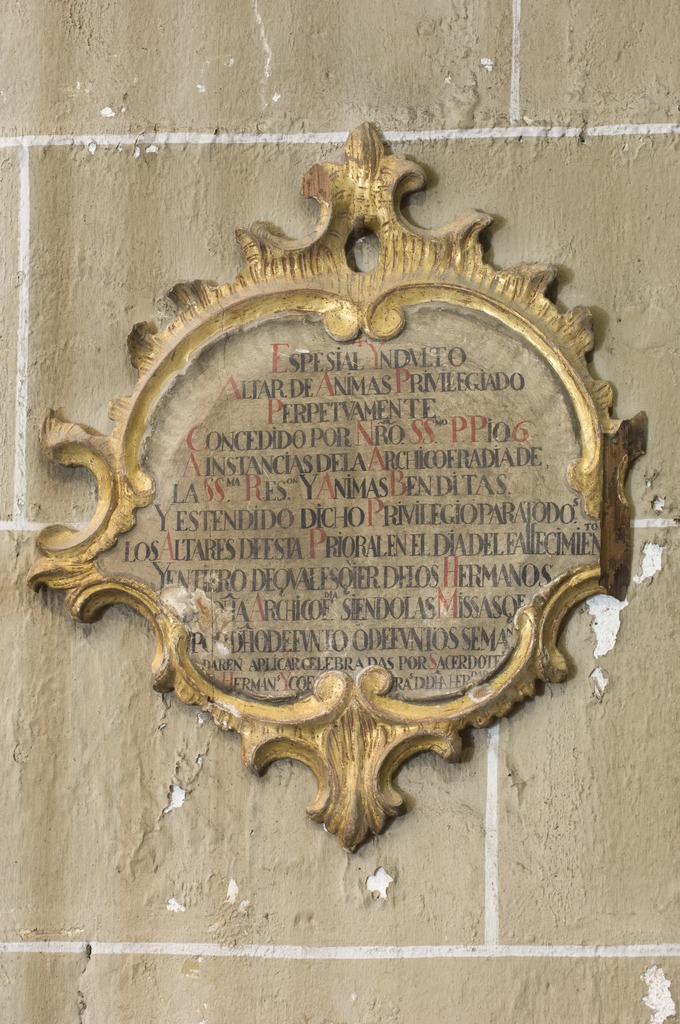 ESPESIAL YNDVLTO
ALTAR DE ANIMAS PRIVILEGIADO
PERPETVAMENTE
CONCEDIDO POR NRO SS.MO P PIO 6
A INSTANCIAS DE LA ARCHICOFRADIA DE
LA SS.MA RES.ON Y ANIMAS BENDITAS.
Y ESTENDIDO DICHO PRIVILEGIO PARA TODO.S
LOS ALTARES DE ESTA PRIORAL EN EL DIA DEL FALLECIMIEN.TO
Y ENTIERO DE QVALESQIER DE LOS HERMANOS
ARCHICOF.DIA SIENDO LAS MISAS QE
POR DHO DEFVNTO O DEFVNTOS SE MA
DAREN APLICAR CELEBRADAS POR SACERDOTE
HERMAN.